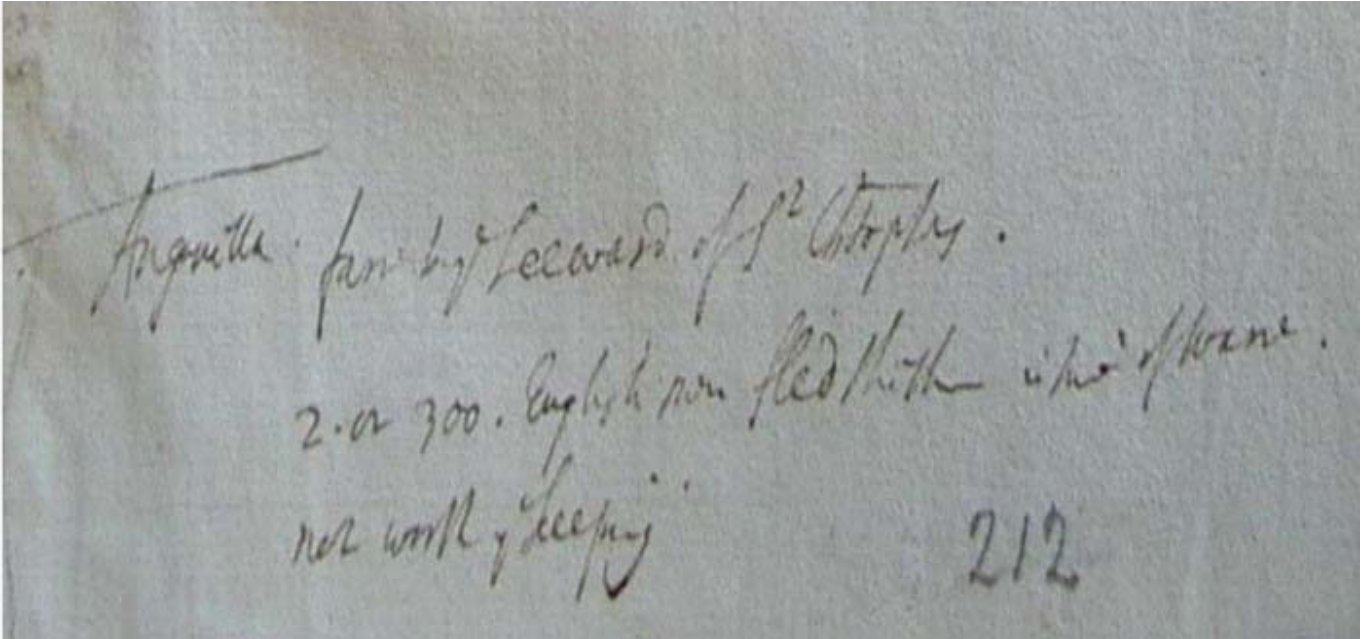 Anguilla. farr by yᵉ Leeward of Sᵗ Chrophrs.
2. or 300. English men fled thither in time of warre.
not worth yᵉ keeping.
212